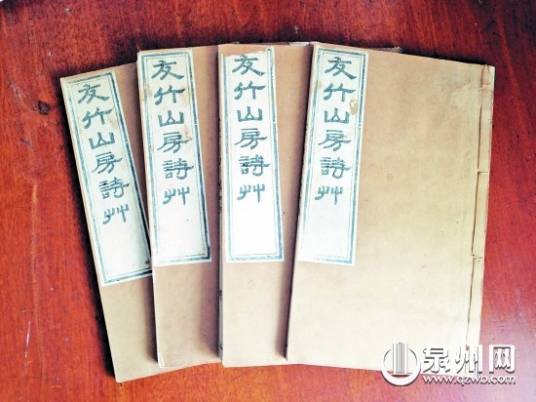 友竹山房詩艸
友竹山房詩艸
友竹山房詩艸
友竹山房詩艸
泉州网
www.qzwb.com